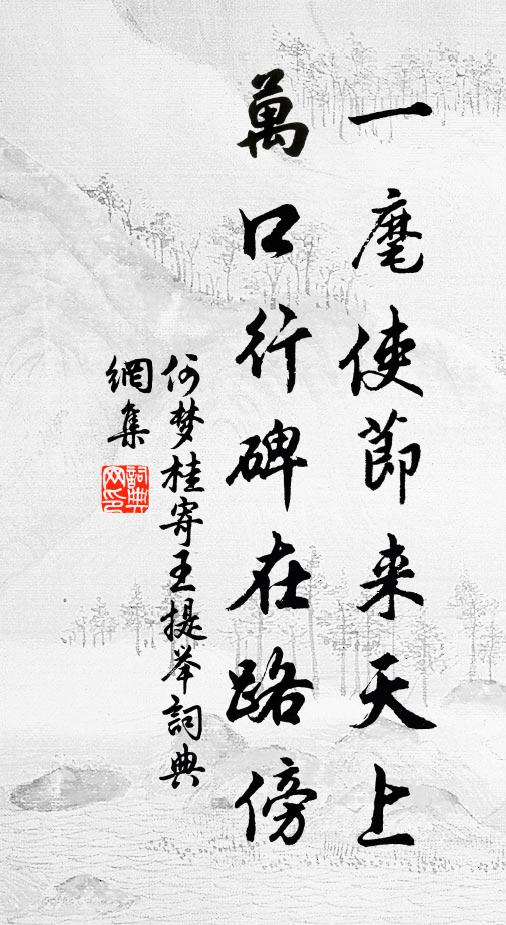 一麾使節来天上
萬口行碑在路傍
何梦桂寄王提举詞典
網集
詞典网印